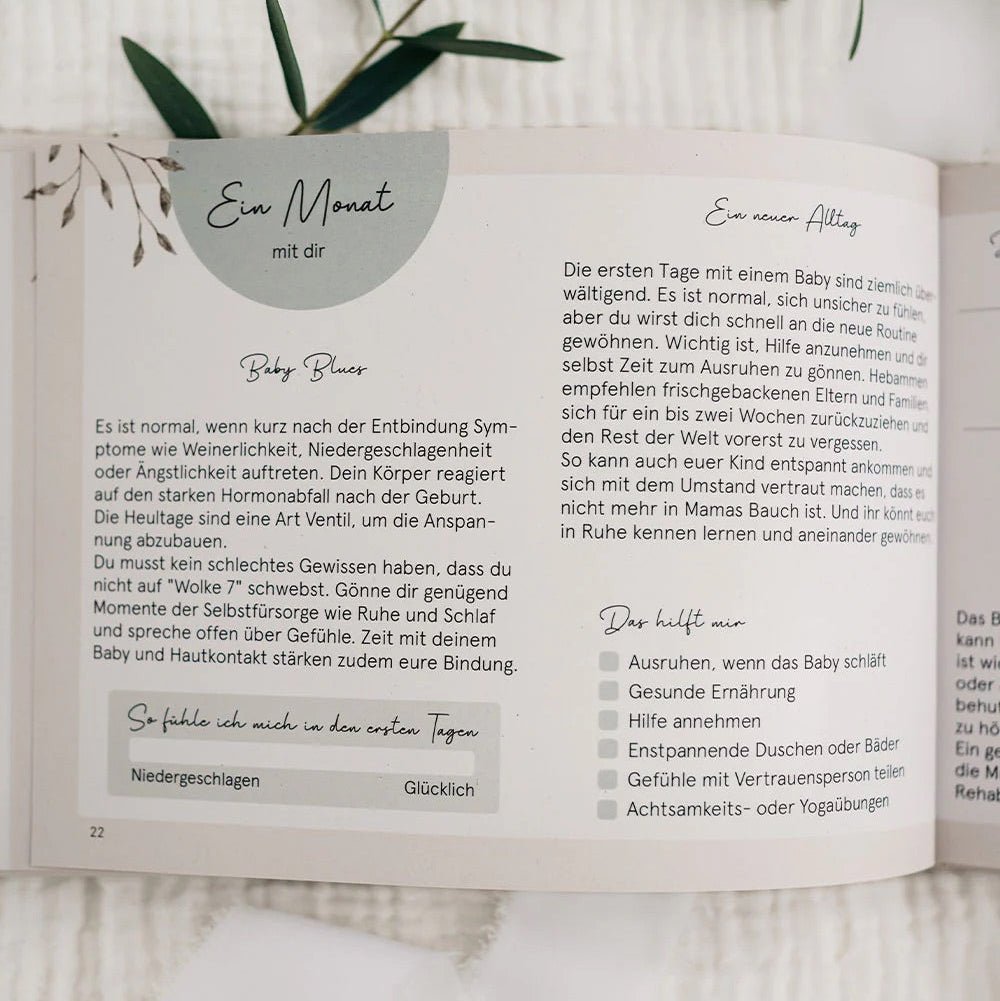 Ein Monat
mit dir
Baby Blues
Es ist normal, wenn kurz nach der Entbindung Sym-
ptome wie Weinerlichkeit, Niedergeschlagenheit
oder Ängstlichkeit auftreten. Dein Körper reagiert
auf den starken Hormonabfall nach der Geburt.
Die Heultage sind eine Art Ventil, um die Anspan-
nung abzubauen.
Du musst kein schlechtes Gewissen haben, dass du
nicht auf "Wolke 7" schwebst. Gönne dir genügend
Momente der Selbstfürsorge wie Ruhe und Schlaf
und spreche offen über Gefühle. Zeit mit deinem
Baby und Hautkontakt stärken zudem eure Bindung.
So fühle ich mich in den ersten Tagen
Niedergeschlagen
Glücklich
22
Ein neuer Alltag
Die ersten Tage mit einem Baby sind ziemlich über-
wältigend. Es ist normal, sich unsicher zu fühlen,
aber du wirst dich schnell an die neue Routine
gewöhnen. Wichtig ist, Hilfe anzunehmen und dir
selbst Zeit zum Ausruhen zu gönnen. Hebammen
empfehlen frischgebackenen Eltern und Familien,
sich für ein bis zwei Wochen zurückzuziehen und
den Rest der Welt vorerst zu vergessen.
So kann auch euer Kind entspannt ankommen und
sich mit dem Umstand vertraut machen, dass es
nicht mehr in Mamas Bauch ist. Und ihr könnt euch
in Ruhe kennen lernen und aneinander gewöhnen.
Das hilft mir
Ausruhen, wenn das Baby schläft
Gesunde Ernährung
Hilfe annehmen
Enstpannende Duschen oder Bäder
Gefühle mit Vertrauensperson teilen
Achtsamkeits- oder Yogaübungen
Das B
kann
ist wi
oder
behut
zu hö
Ein ge
die M
Rehab